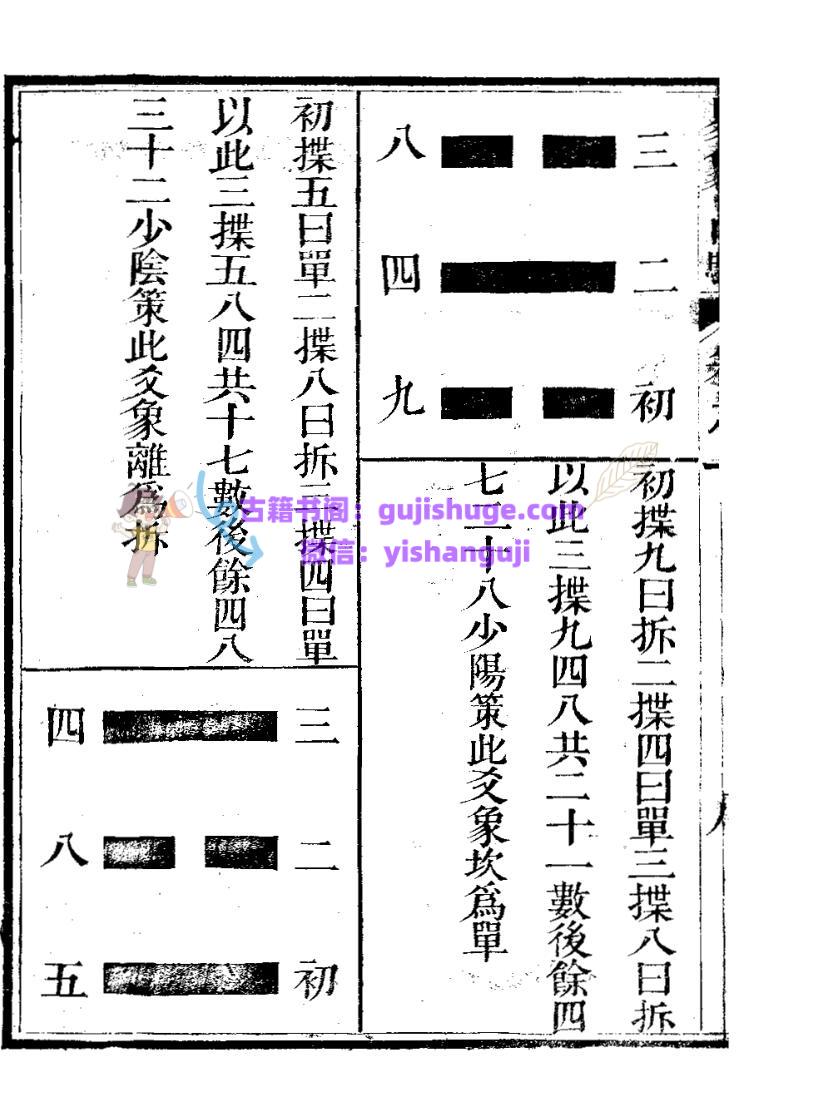 三 八
二 四
初 九
初揲九曰拆二揲四曰單三揲八曰拆
以此三揲九四八共二十一數後餘四
七二十八少陽策此爻象坎爲單
初揲五曰單二揲八曰拆三揲四曰單
以此三揲五八四共十七數後餘四八
三十二少陰策此爻象離爲拆
三 四
二 八
初 五
古籍书阁：gujishuge.com
微信：yishanguji